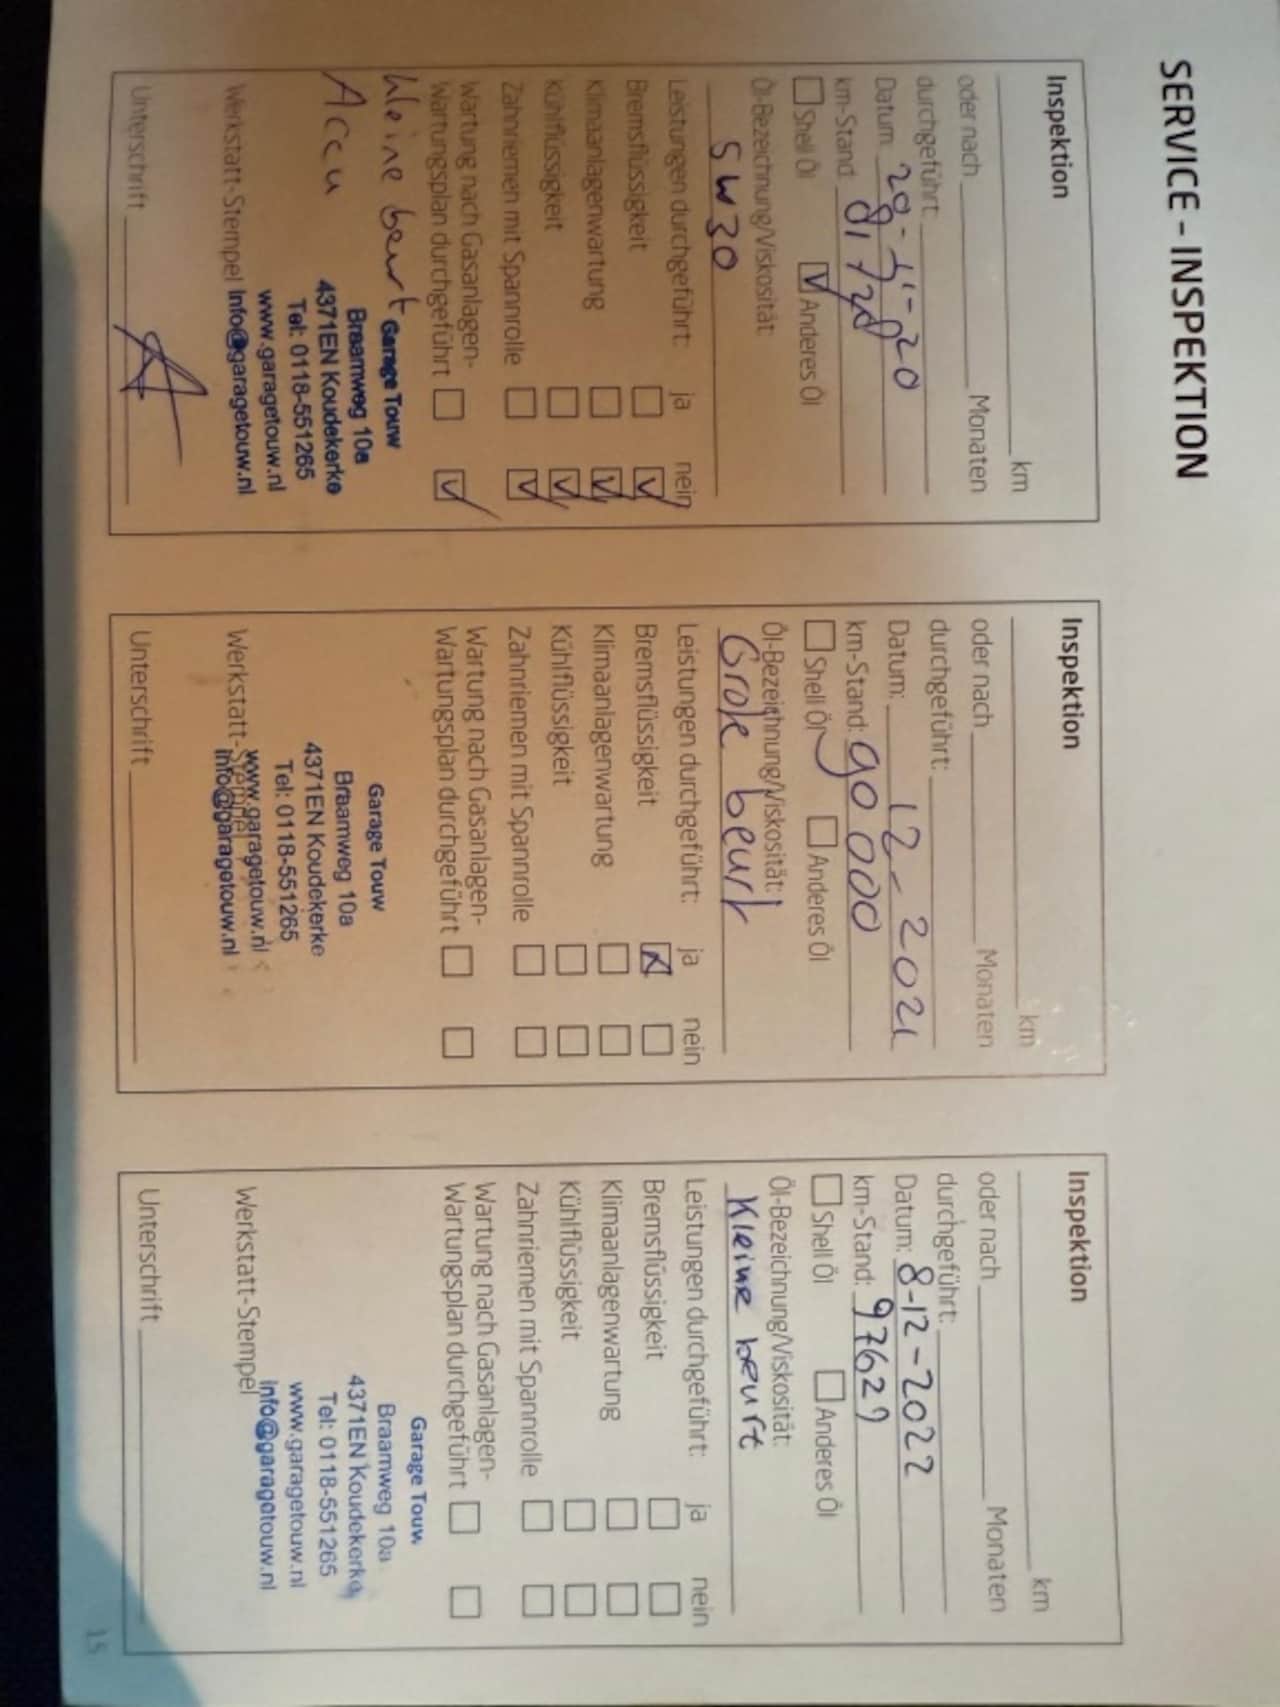 SERVICE - INSPEKTION
Inspektion
km
oder nach Monaten
durchgeführt:
Datum
km-Stand
Shell Öl Anderes Öl
Öl-Bezeichnung/Viskosität:
5W30
Leistungen durchgeführt: ja nein
Bremsflüssigkeit
Klimaanlagenwartung
Kühlflüssigkeit
Zahnriemen mit Spannrolle
Wartung nach Gasanlagen-
Wartungsplan durchgeführt
kleine beurt
Accu
Garage Touw
Braamweg 10a
4371EN Koudekerke
Tel: 0118-551265
www.garagetouw.nl
Werkstatt-Stempel info@garagetouw.nl
Unterschrift
Inspektion
km
oder nach Monaten
durchgeführt:
Datum: 12-2021
km-Stand: 90 000
Shell Öl Anderes Öl
Öl-Bezeichnung/Viskosität:
Grote beurt
Leistungen durchgeführt: ja nein
Bremsflüssigkeit
Klimaanlagenwartung
Kühlflüssigkeit
Zahnriemen mit Spannrolle
Wartung nach Gasanlagen-
Wartungsplan durchgeführt
Garage Touw
Braamweg 10a
4371EN Koudekerke
Tel: 0118-551265
www.garagetouw.nl
Werkstatt-Stempel info@garagetouw.nl
Unterschrift
Inspektion
km
oder nach Monaten
durchgeführt:
Datum: 8-12-2022
km-Stand: 97629
Shell Öl Anderes Öl
Öl-Bezeichnung/Viskosität:
Kleine beurt
Leistungen durchgeführt: ja nein
Bremsflüssigkeit
Klimaanlagenwartung
Kühlflüssigkeit
Zahnriemen mit Spannrolle
Wartung nach Gasanlagen-
Wartungsplan durchgeführt
Garage Touw
Braamweg 10a
4371EN Koudekerke
Tel: 0118-551265
www.garagetouw.nl
Werkstatt-Stempel info@garagetouw.nl
Unterschrift
15